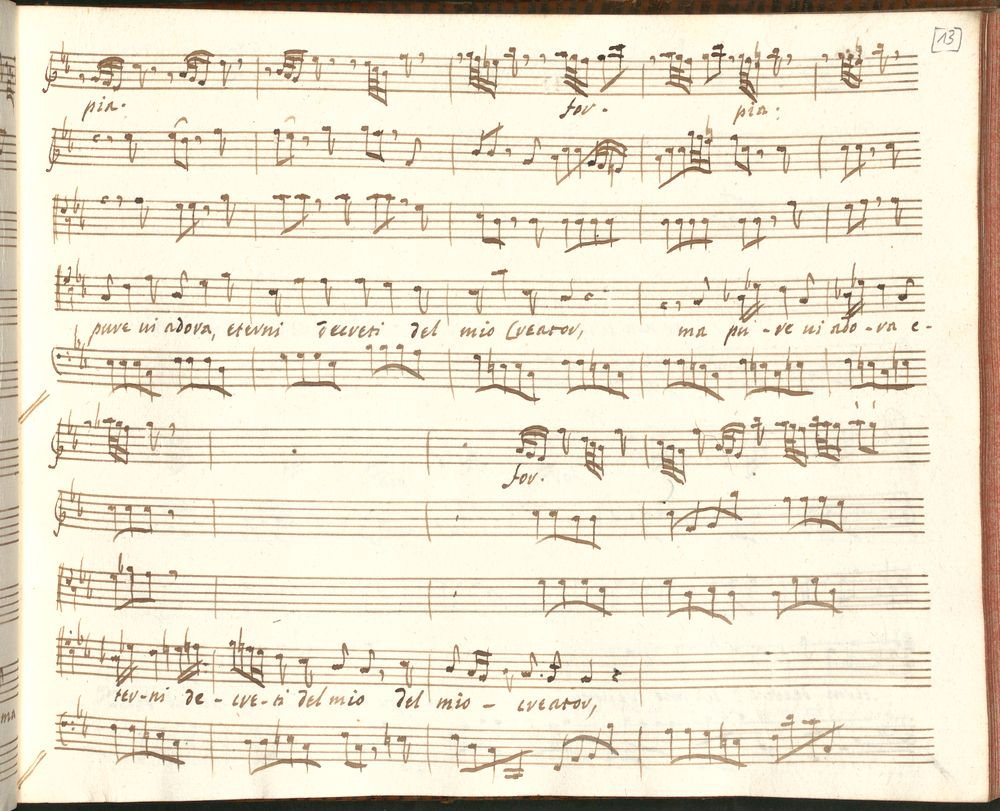 [13]
pia. for. pia:
pure ui adora, eterni decreti del mio Creator, ma pu-re ui ado-ra e-
for.
ter-ni de-cre-ti del mio del mio - creator,
ma